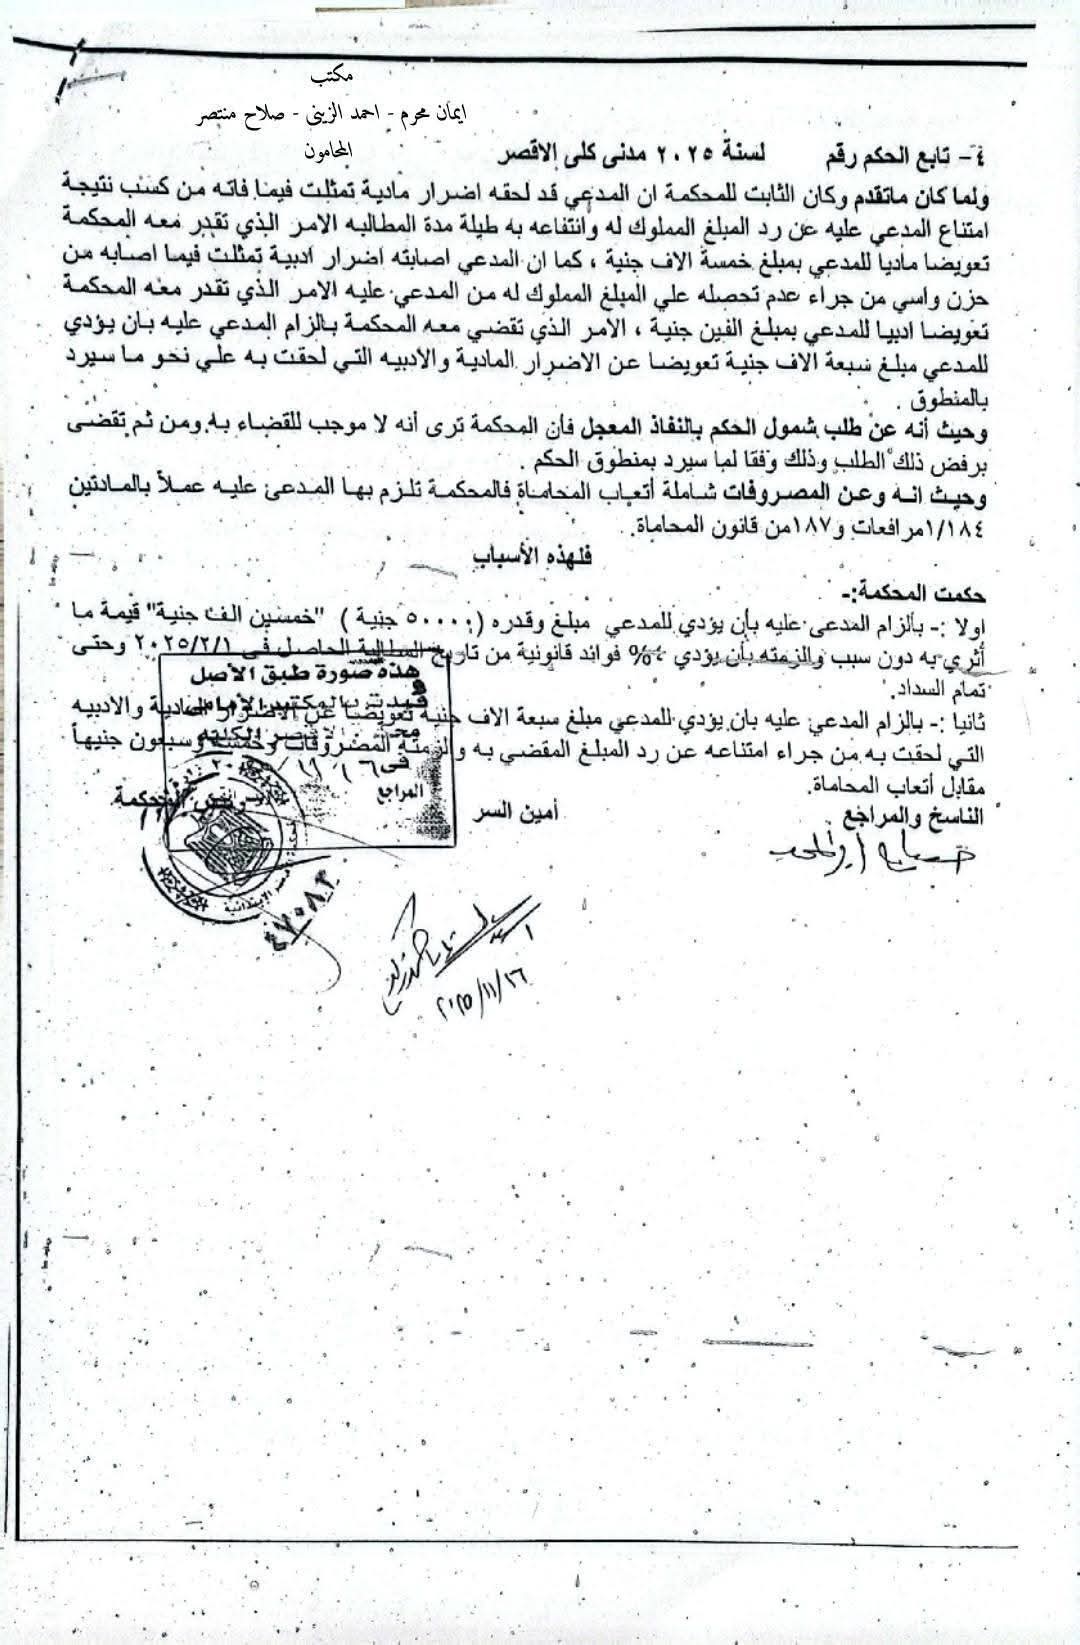 مكتب
ايمان محرم - احمد الزينى - صلاح منتصر
المحامون
٤- تابع الحكم رقم لسنة ٢٠٢٥ مدنى كلى الاقصر
ولما كان ماتقدم وكان الثابت للمحكمة ان المدعي قد لحقه اضرار مادية تمثلت فيما فاته من كسب نتيجة
امتناع المدعي عليه عن رد المبلغ المملوك له وانتفاعه به طيلة مدة المطالبه الامر الذي تقدر معه المحكمة
تعويضا ماديا للمدعي بمبلغ خمسة الاف جنية ، كما ان المدعي اصابته اضرار ادبية تمثلت فيما اصابه من
حزن واسي من جراء عدم تحصله علي المبلغ المملوك له من المدعي عليه الامر الذي تقدر معه المحكمة
تعويضا ادبيا للمدعي بمبلغ الفين جنية ، الامر الذي تقضي معه المحكمة بالزام المدعي عليه بان يؤدي
للمدعي مبلغ سبعة الاف جنية تعويضا عن الاضرار المادية والادبيه التي لحقت به علي نحو ما سيرد
بالمنطوق .
وحيث أنه عن طلب شمول الحكم بالنفاذ المعجل فأن المحكمة ترى أنه لا موجب للقضاء به ومن ثم تقضى
برفض ذلك الطلب وذلك وفقا لما سيرد بمنطوق الحكم .
وحيث انه وعن المصروفات شاملة أتعاب المحاماة فالمحكمة تلزم بها المدعى عليه عملاً بالمادتين
١/١٨٤مرافعات و١٨٧من قانون المحاماة.
فلهذه الأسباب
حكمت المحكمة:-
اولا :- بألزام المدعى عليه بأن يؤدي للمدعي مبلغ وقدره (٥٠٠٠٠ جنية ) "خمسين الف جنية" قيمة ما
أثري به دون سبب والزمته بأن يؤدي ٤% فوائد قانونية من تاريخ المطالبة الحاصل فى ٢٠٢٥/٢/١ وحتى
تمام السداد.
ثانيا :- بالزام المدعي عليه بان يؤدي للمدعي مبلغ سبعة الاف جنية تعويضا عن الاضرار المادية والادبيه
التي لحقت به من جراء امتناعه عن رد المبلغ المقضي به والزمته المصروفات وخمسة وسبعون جنيهاً
مقابل أتعاب المحاماة.
الناسخ والمراجع أمين السر رئيس المحكمة
هذه صورة طبق الأصل
المراجع
٤٧٠٨٣
٢٠٢٥/١١/١٦